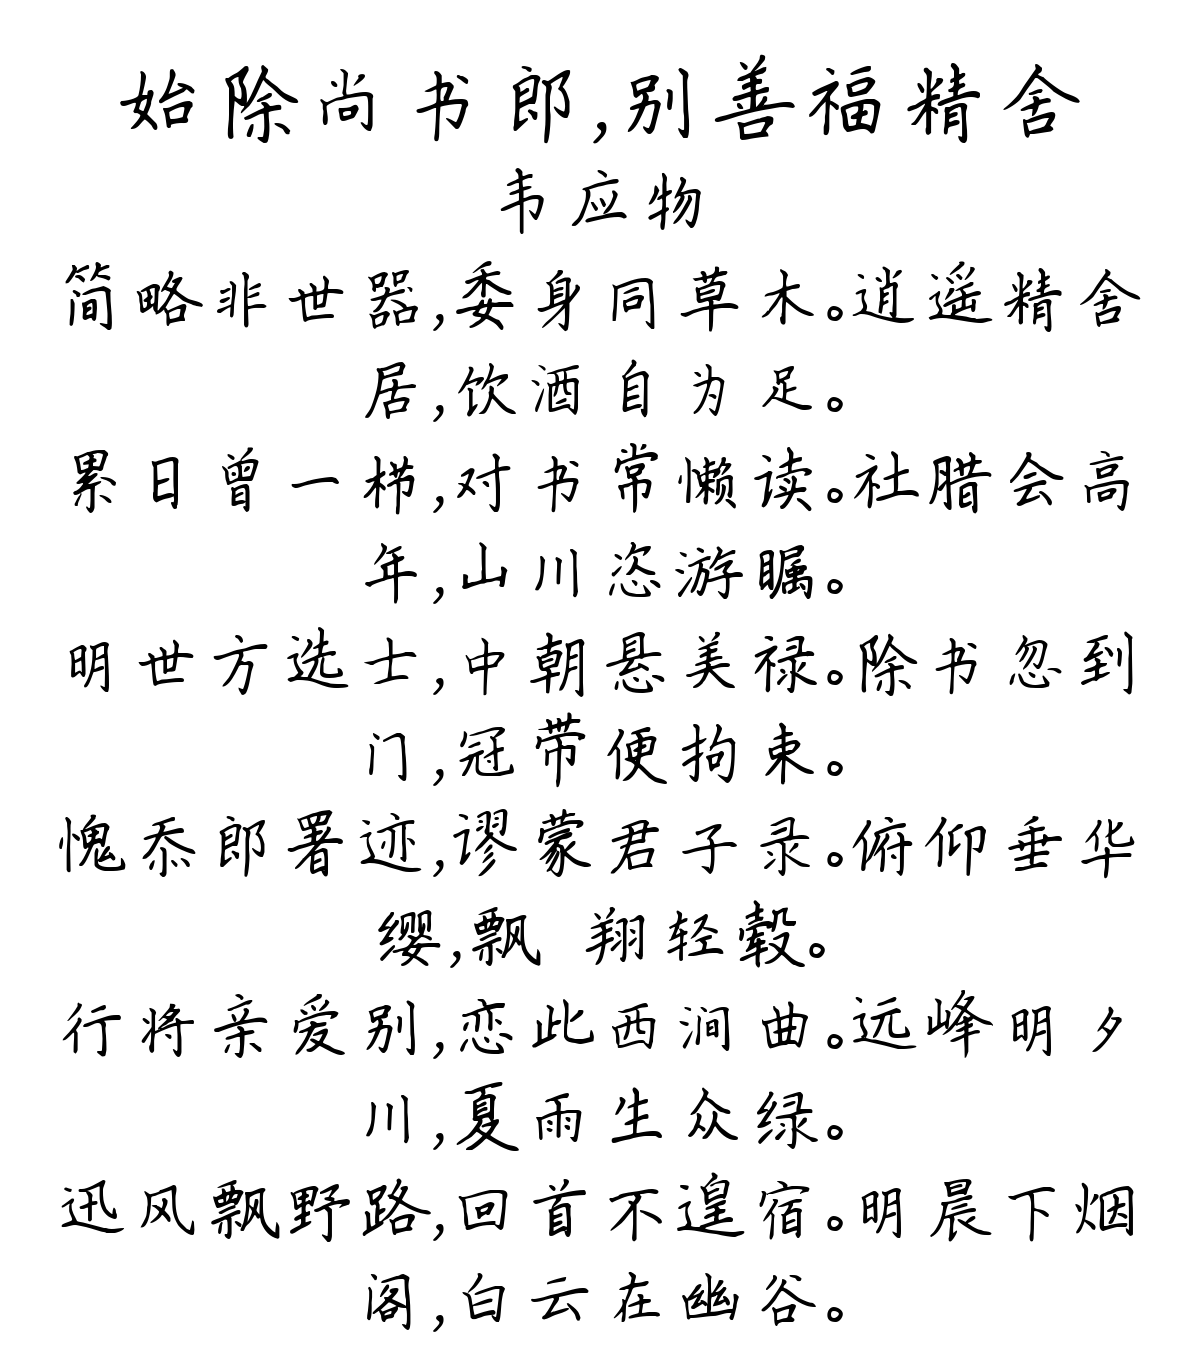 始除尚书郎,别善福精舍
韦应物
简略非世器,委身同草木。逍遥精舍
居,饮酒自为足。
累日曾一栉,对书常懒读。社腊会高
年,山川恣游瞩。
明世方选士,中朝悬美禄。除书忽到
门,冠带便拘束。
愧忝郎署迹,谬蒙君子录。俯仰垂华
缨,飘 翔轻毂。
行将亲爱别,恋此西涧曲。远峰明夕
川,夏雨生众绿。
迅风飘野路,回首不遑宿。明晨下烟
阁,白云在幽谷。